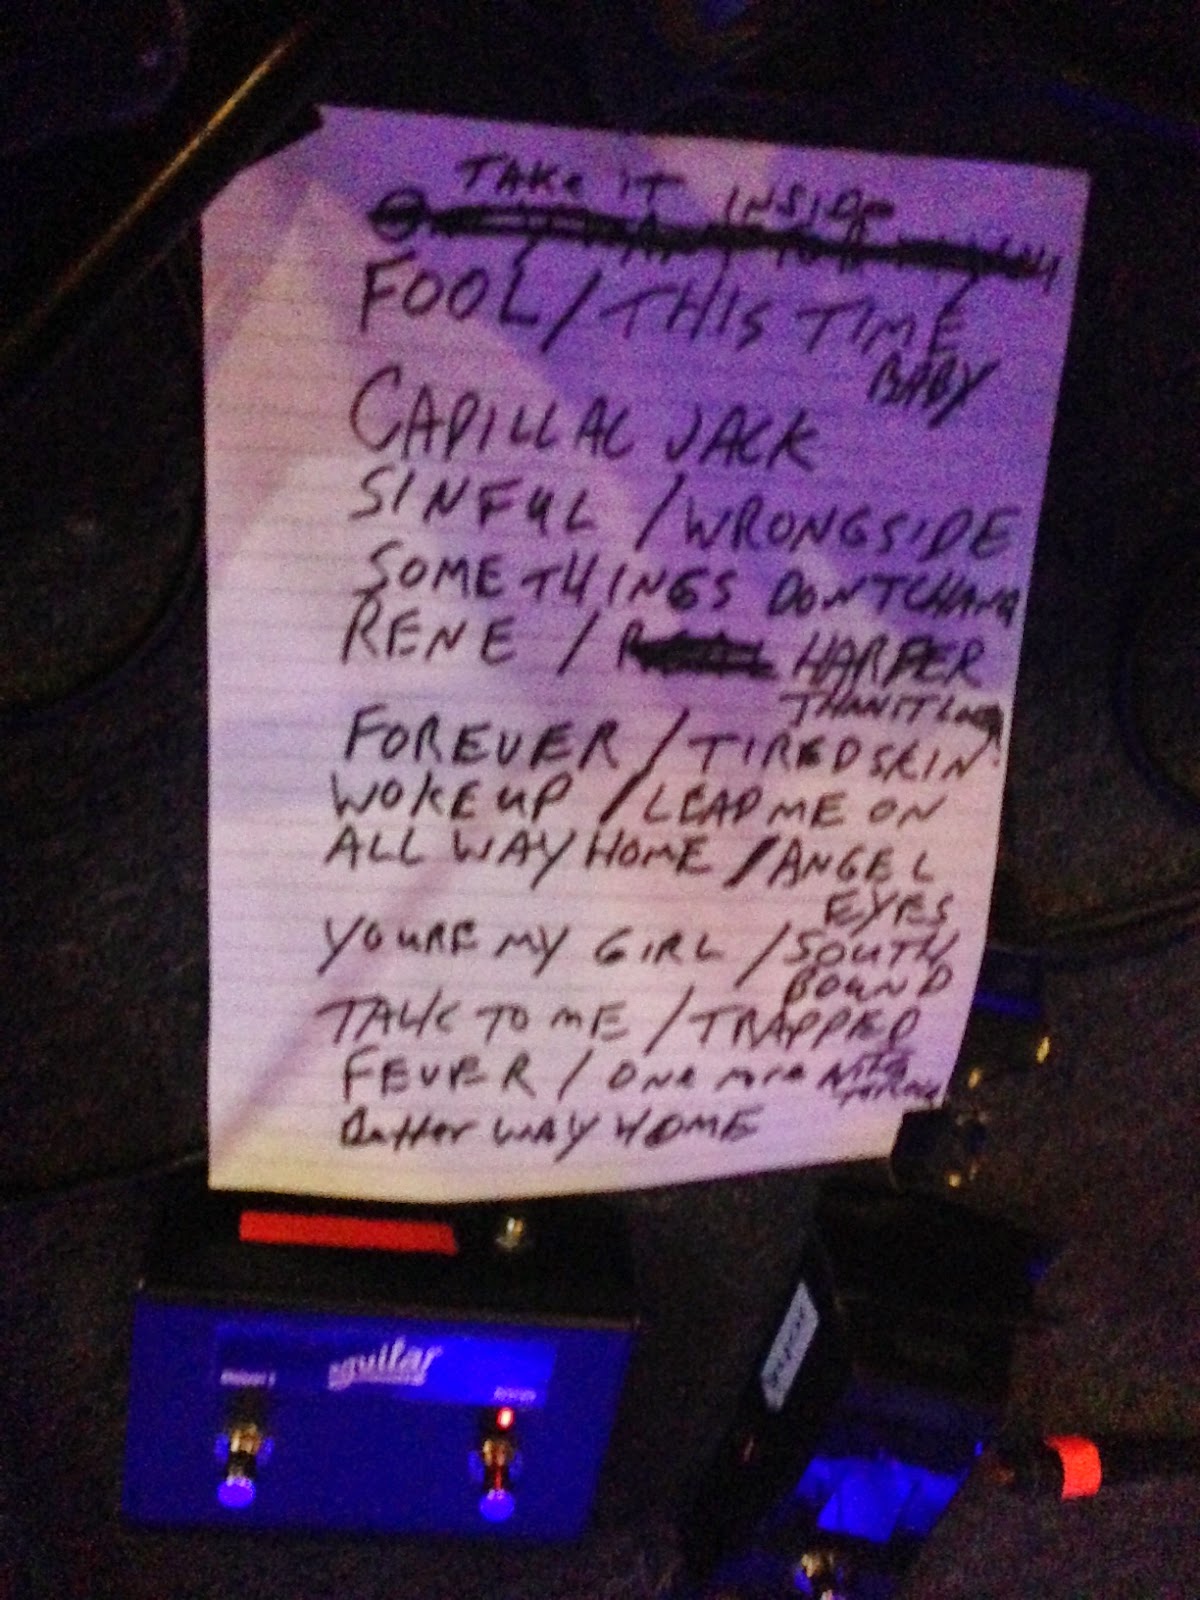 TAKE IT INSIDE
FOOL / THIS TIME
BABY
CADILLAC JACK
SINFUL / WRONGSIDE
SOME THINGS DONT CHANG
RENE / HARDER
THAN IT LOOKS
FOREVER / TIRED SKIN
WOKE UP / LEAD ME ON
ALL WAY HOME / ANGEL
EYES
YOURE MY GIRL / SOUTH
BOUND
TALK TO ME / TRAPPED
FEVER / ONE more
Better WAY HOME
aguilar